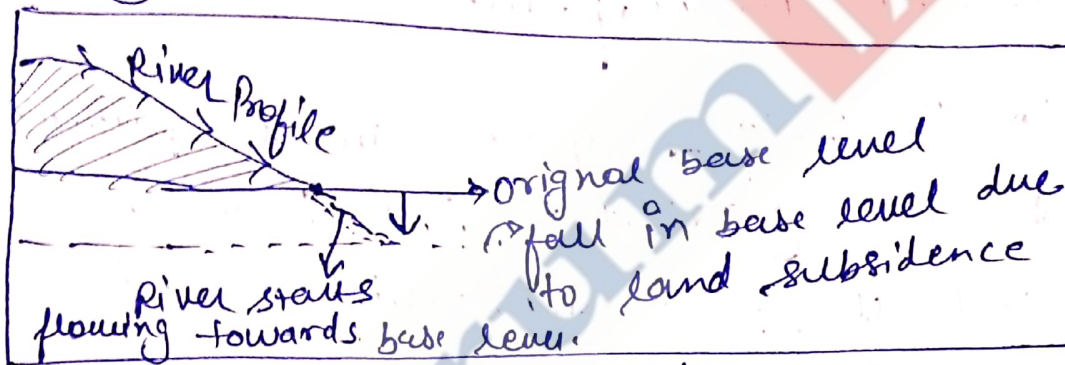 River Profile
orignal base level
fall in base level due
to land subsidence
River starts
flowing towards base level.